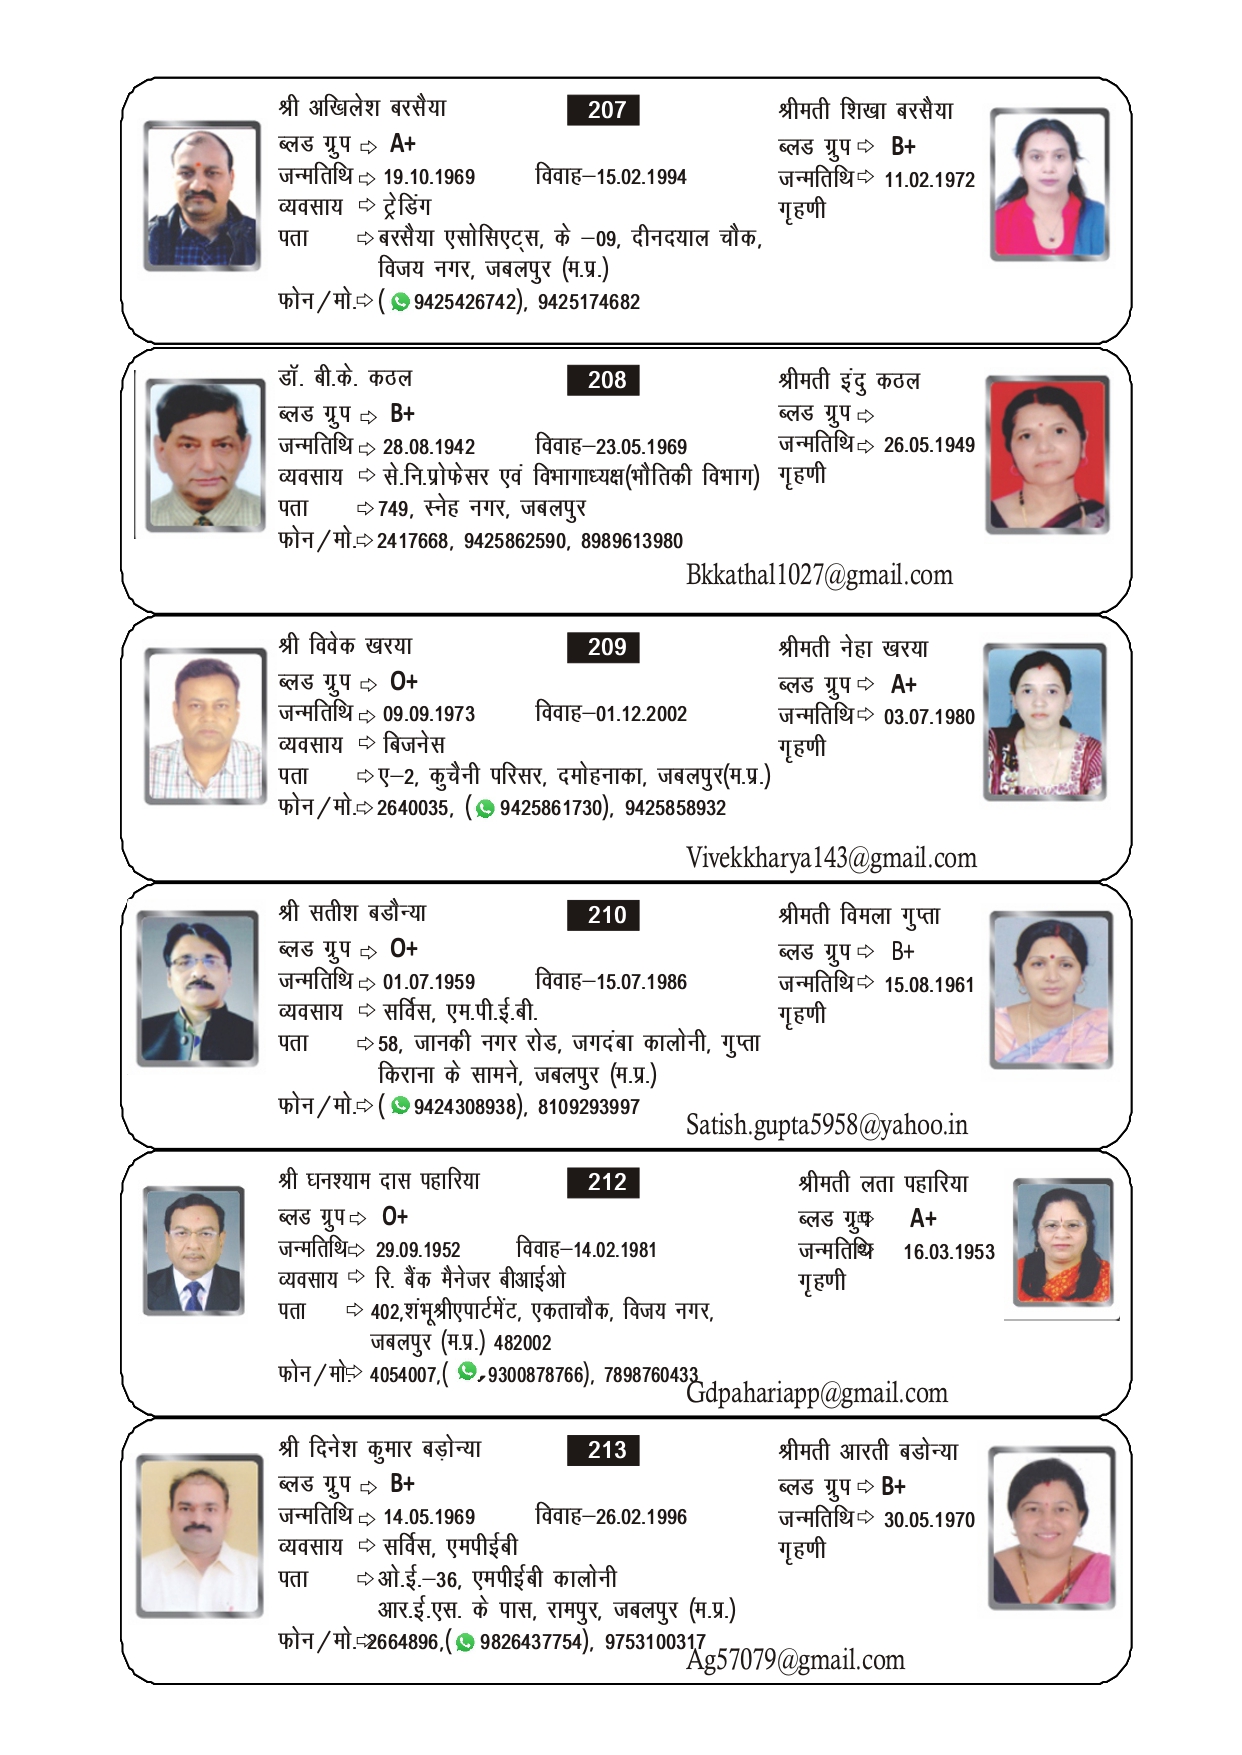 श्री अखिलेश बरसैया
207
ब्लड ग्रुप ⇨ A+
जन्मतिथि ⇨ 19.10.1969 विवाह–15.02.1994
व्यवसाय ⇨ ट्रेडिंग
पता ⇨ बरसैया एसोसिएट्स, के –09, दीनदयाल चौक,
विजय नगर, जबलपुर (म.प्र.)
फोन/मो.⇨ ( 9425426742), 9425174682
श्रीमती शिखा बरसैया
ब्लड ग्रुप ⇨ B+
जन्मतिथि ⇨ 11.02.1972
गृहणी
डॉ. बी.के. कठल
208
ब्लड ग्रुप ⇨ B+
जन्मतिथि ⇨ 28.08.1942 विवाह–23.05.1969
व्यवसाय ⇨ से.नि.प्रोफेसर एवं विभागाध्यक्ष(भौतिकी विभाग)
पता ⇨ 749, स्नेह नगर, जबलपुर
फोन/मो.⇨ 2417668, 9425862590, 8989613980
श्रीमती इंदु कठल
ब्लड ग्रुप ⇨
जन्मतिथि ⇨ 26.05.1949
गृहणी
Bkkathal1027@gmail.com
श्री विवेक खरया
209
ब्लड ग्रुप ⇨ O+
जन्मतिथि ⇨ 09.09.1973 विवाह–01.12.2002
व्यवसाय ⇨ बिजनेस
पता ⇨ ए–2, कुचैनी परिसर, दमोहनाका, जबलपुर(म.प्र.)
फोन/मो.⇨ 2640035, ( 9425861730), 9425858932
श्रीमती नेहा खरया
ब्लड ग्रुप ⇨ A+
जन्मतिथि ⇨ 03.07.1980
गृहणी
Vivekkharya143@gmail.com
श्री सतीश बडौन्या
210
ब्लड ग्रुप ⇨ O+
जन्मतिथि ⇨ 01.07.1959 विवाह–15.07.1986
व्यवसाय ⇨ सर्विस, एम.पी.ई.बी.
पता ⇨ 58, जानकी नगर रोड, जगदंबा कालोनी, गुप्ता
किराना के सामने, जबलपुर (म.प्र.)
फोन/मो.⇨ ( 9424308938), 8109293997
श्रीमती विमला गुप्ता
ब्लड ग्रुप ⇨ B+
जन्मतिथि ⇨ 15.08.1961
गृहणी
Satish.gupta5958@yahoo.in
श्री घनश्याम दास पहारिया
212
ब्लड ग्रुप ⇨ O+
जन्मतिथि ⇨ 29.09.1952 विवाह–14.02.1981
व्यवसाय ⇨ रि. बैंक मैनेजर बीआईओ
पता ⇨ 402,शंभूश्रीएपार्टमेंट, एकताचौक, विजय नगर,
जबलपुर (म.प्र.) 482002
फोन/मो.⇨ 4054007,( 9300878766), 7898760433
श्रीमती लता पहारिया
ब्लड ग्रुप ⇨ A+
जन्मतिथि ⇨ 16.03.1953
गृहणी
Gdpahariapp@gmail.com
श्री दिनेश कुमार बड़ोन्या
213
ब्लड ग्रुप ⇨ B+
जन्मतिथि ⇨ 14.05.1969 विवाह–26.02.1996
व्यवसाय ⇨ सर्विस, एमपीईबी
पता ⇨ ओ.ई.–36, एमपीईबी कालोनी
आर.ई.एस. के पास, रामपुर, जबलपुर (म.प्र.)
फोन/मो.⇨ 2664896,( 9826437754), 9753100317
श्रीमती आरती बडोन्या
ब्लड ग्रुप ⇨ B+
जन्मतिथि ⇨ 30.05.1970
गृहणी
Ag57079@gmail.com